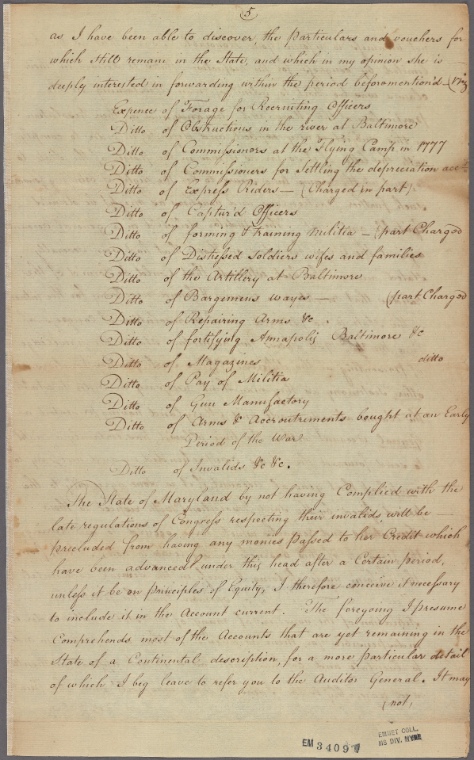 (5)
as I have been able to discover, the Particulars and vouchers for
which still remain in the State, and which in my opinion she is
deeply interested in forwarding within the period beforemention'd—
Expence of Forage for Recruiting Officers
Ditto of Obstructions in the river at Baltimore
Ditto of Commissioners at the Flying Camp in 1777
Ditto of Commissioners for Settling the depreciation acc.ts
Ditto of Express Riders— (Charged in part)
Ditto of Captur'd Officers
Ditto of forming & training Militia — (part Charged
Ditto of Distressed Soldiers wifes and families
Ditto of the Artillery at Baltimore
Ditto of Bargemens wages — (part Charged
Ditto of Repairing Arms &c.
Ditto of fortifying Annapolis Baltimore &c
Ditto of Magazines ditto
Ditto of Pay of Militia
Ditto of Gun Manufactory
Ditto of Arms & Accoutrements bought at an Early
Period of the War
Ditto of Invalids &c &c.
The State of Maryland by not having Complied with the
late regulations of Congress respecting their invalids, will be
precluded from having any monies passed to her Credit which
have been advanced under this head after a Certain period,
unless it be on principles of Equity, I therefore conceive it necessary
to include it in the Account current. The foregoing I presume
Comprehends most of the Accounts that are yet remaining in the
State of a Continental description, for a more particular detail
of which I beg leave to refer you to the Auditor General. It may
not
EM 34097
EMMET COLL.
MS DIV. NYPL